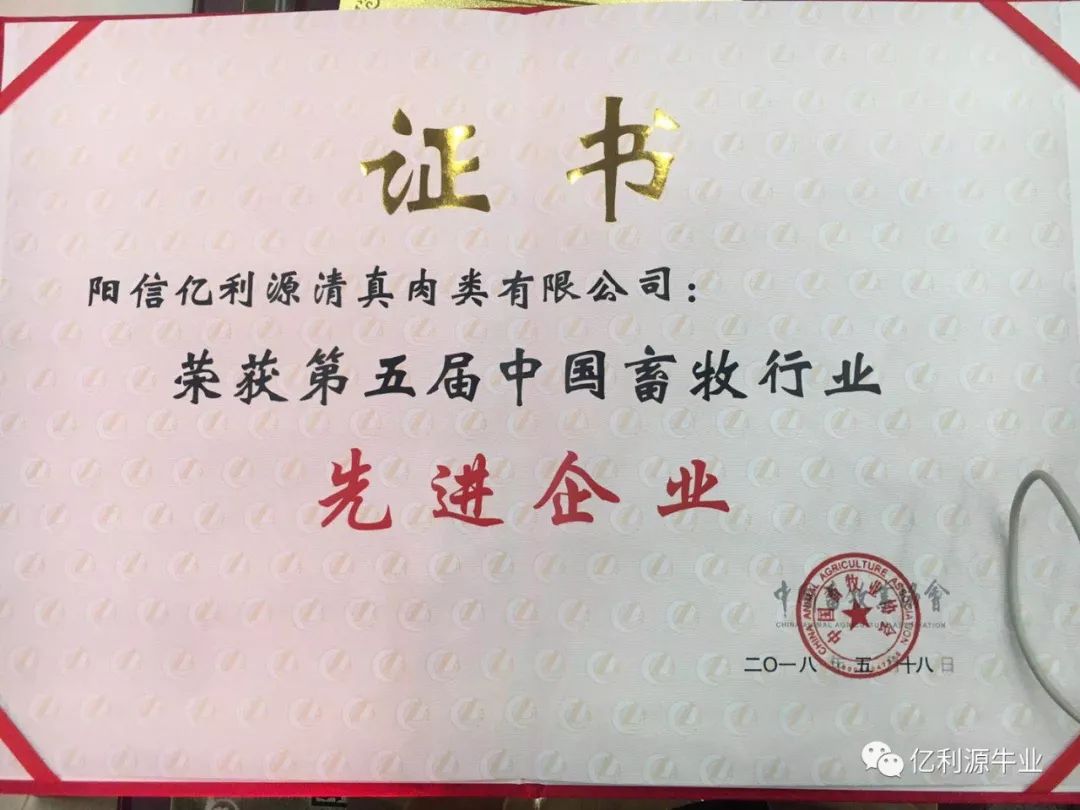 证书
阳信亿利源清真肉类有限公司:
荣获第五届中国畜牧行业
先进企业
中国畜牧业协会
CHINA ANIMAL AGRICULTURE ASSOCIATION
CHINA ANIMAL AGRICULTURE ASSOCIATION
中国畜牧业协会
二〇一八年五月十八日
亿利源牛业